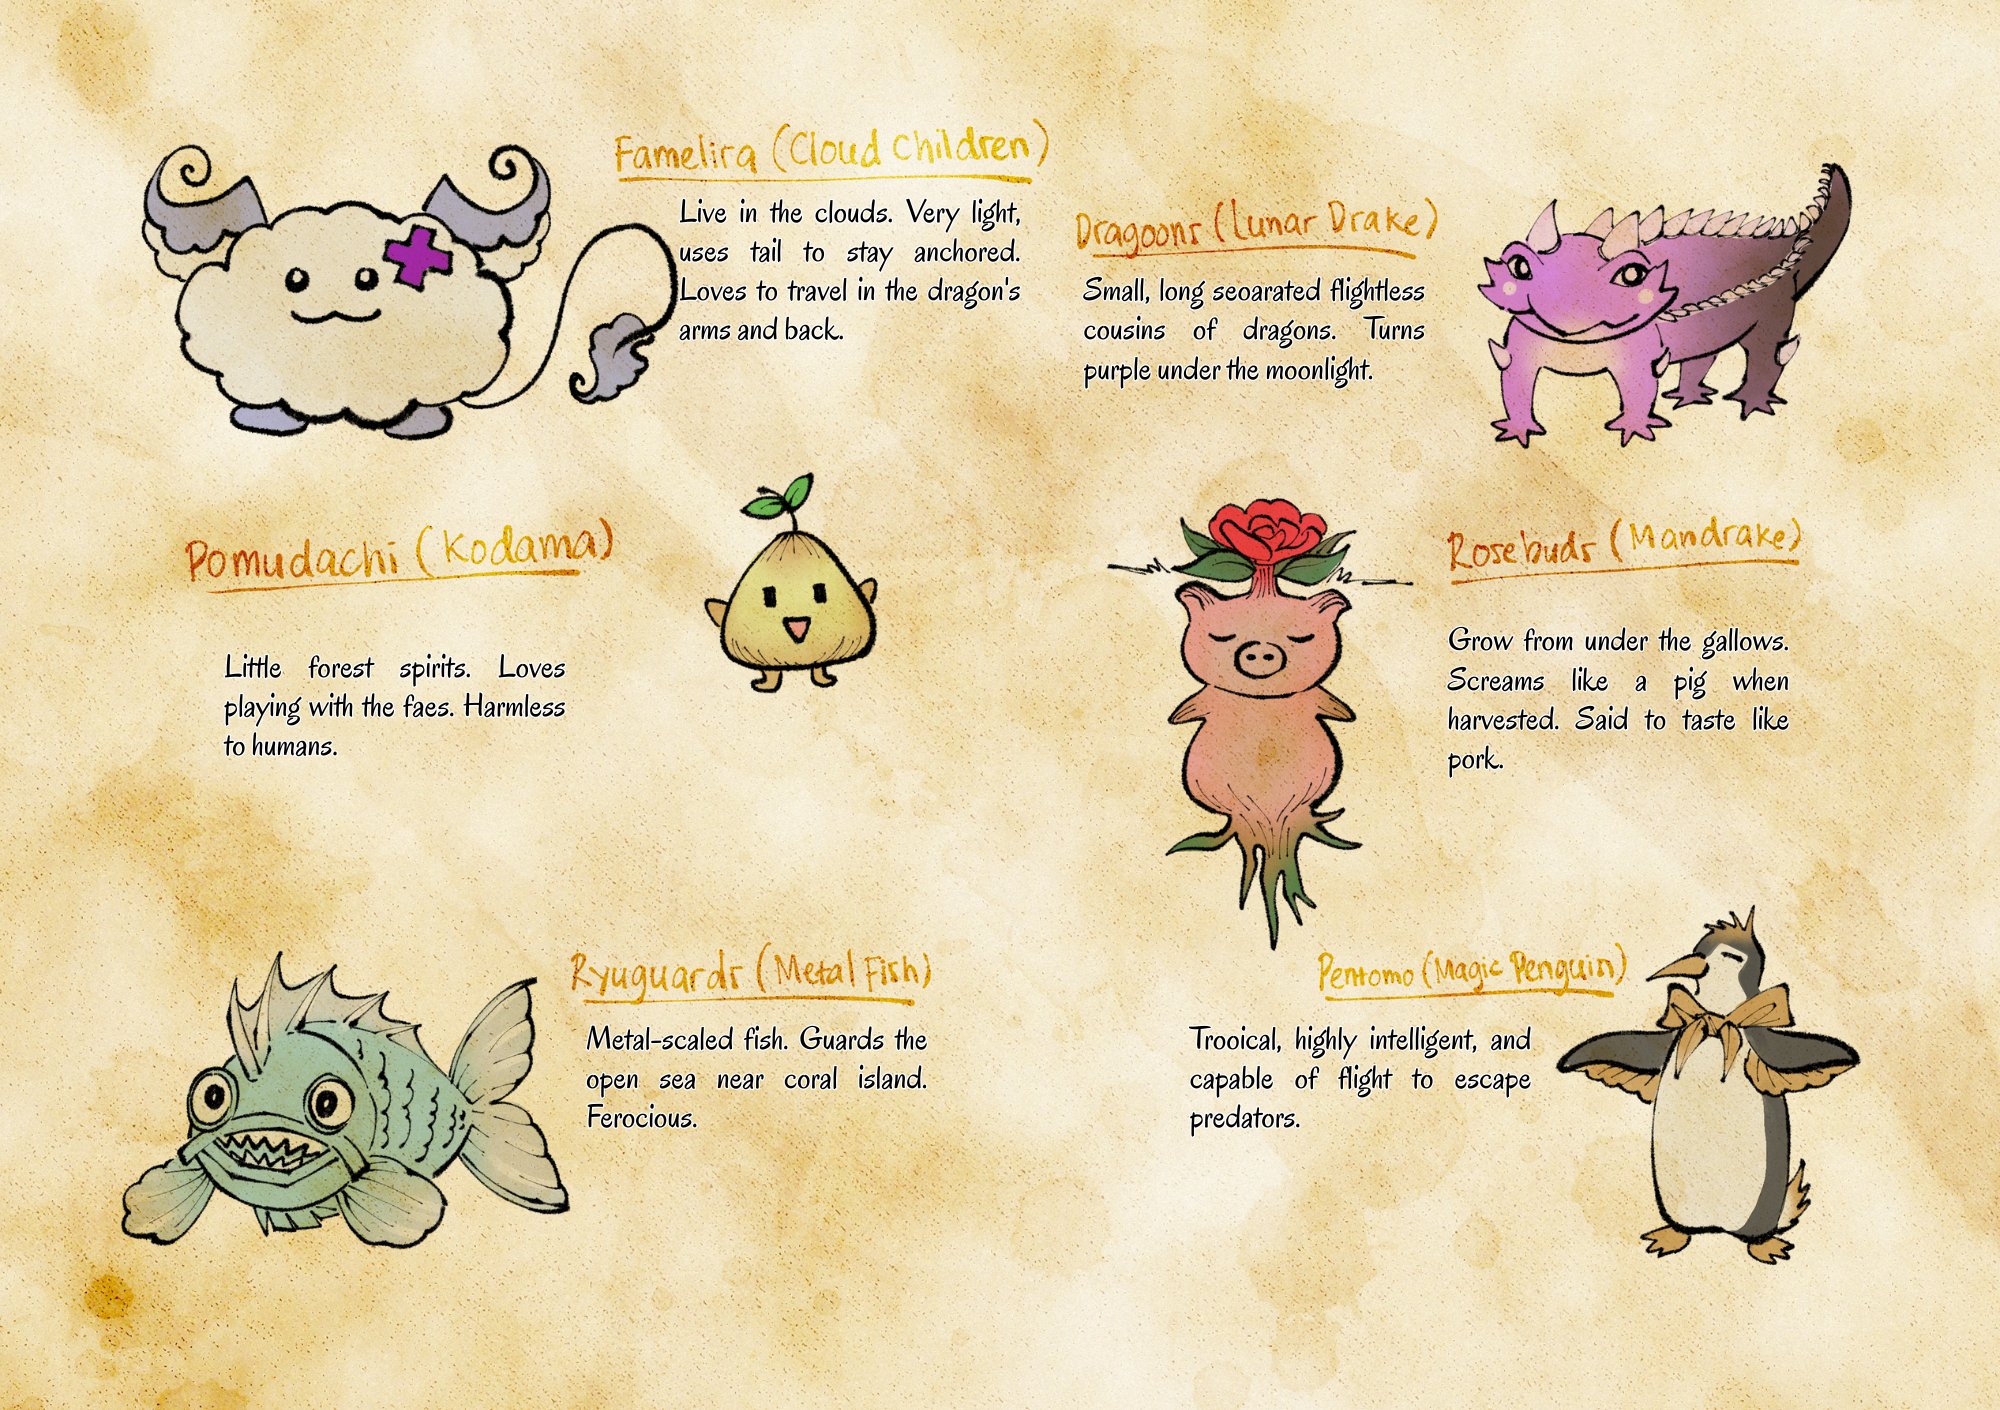 Famelira (Cloud Children)
Live in the clouds. Very light,
uses tail to stay anchored.
Loves to travel in the dragon's
arms and back.
Dragoons (Lunar Drake)
Small, long seoarated flightless
cousins of dragons. Turns
purple under the moonlight.
Pomudachi (Kodama)
Little forest spirits. Loves
playing with the faes. Harmless
to humans.
Rosebuds (Mandrake)
Grow from under the gallows.
Screams like a pig when
harvested. Said to taste like
pork.
Ryuguards (Metal Fish)
Metal-scaled fish. Guards the
open sea near coral island.
Ferocious.
Pentomo (Magic Penguin)
Trooical, highly intelligent, and
capable of flight to escape
predators.